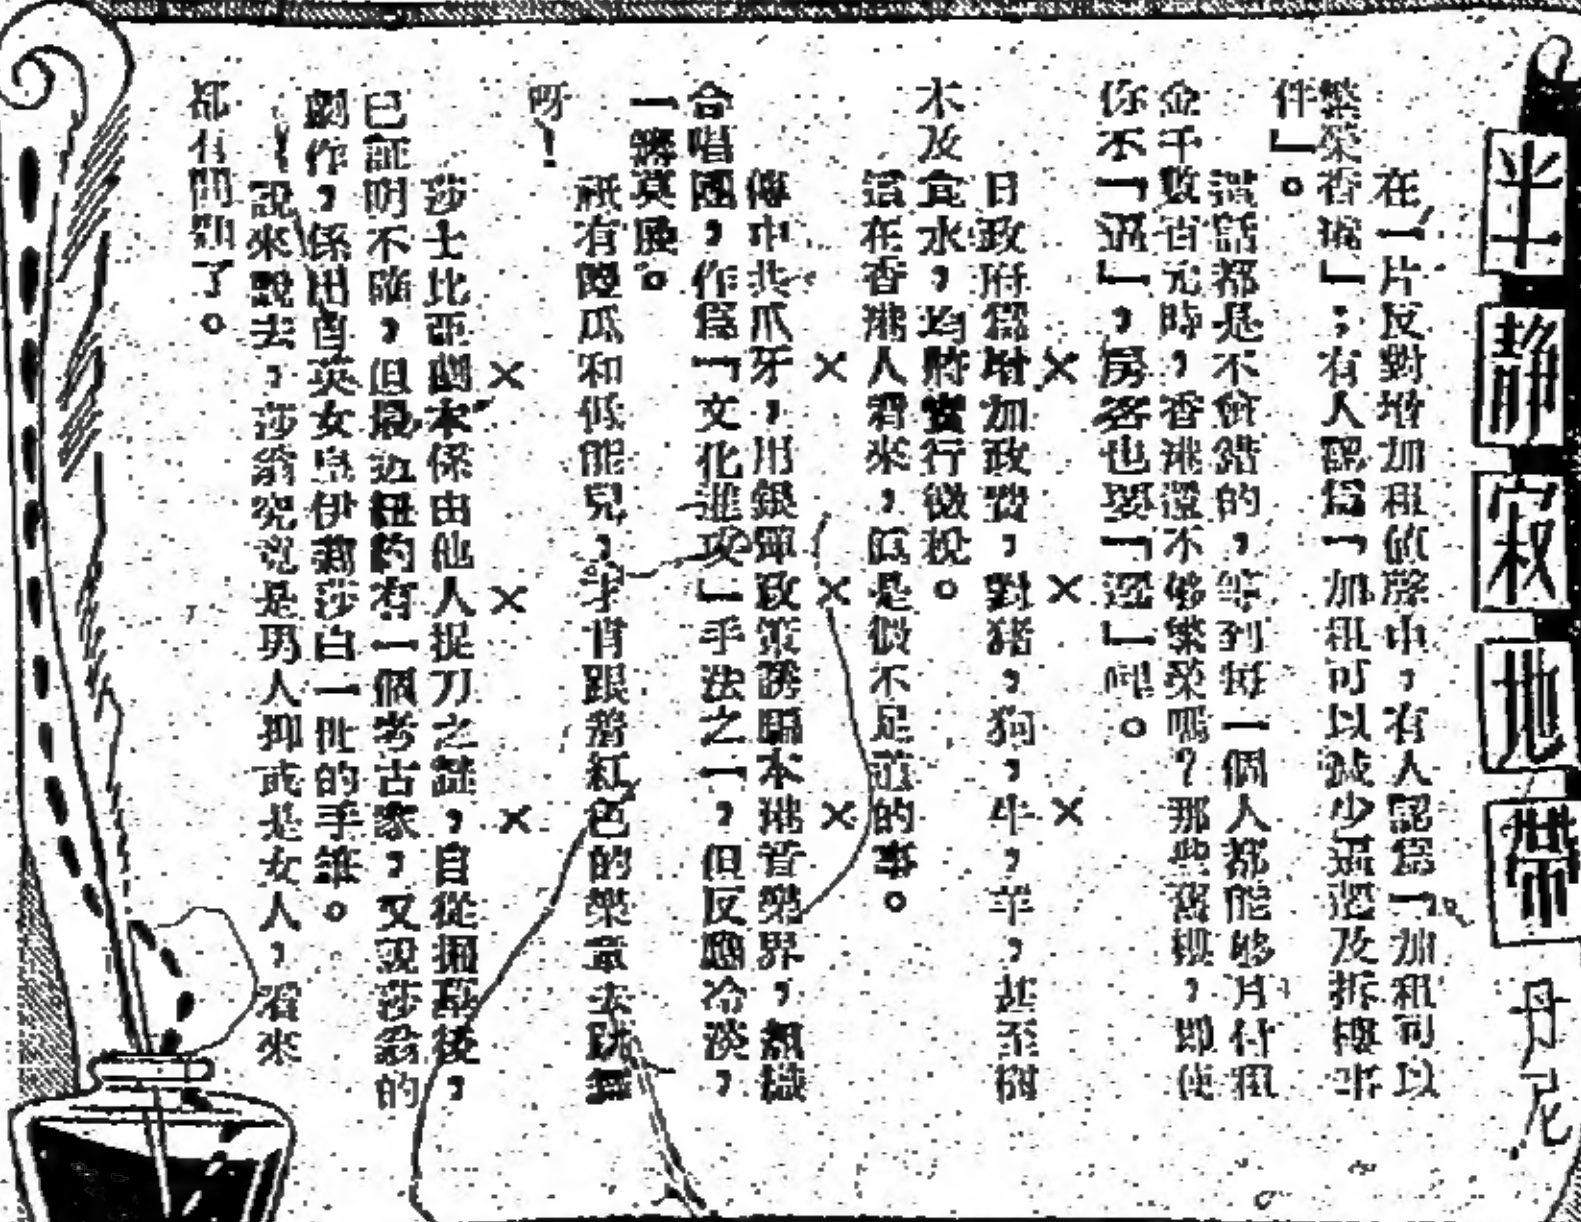 半靜寂地帶
丹尼
在一片反對增加租值聲中,有人認爲「加租可以
繁榮香港」;有人認爲「加租可以減少逼遷及拆樓事
件」。
說話都是不會錯的,等到每一個人都能够月付租
金千數百元時,香港還不够繁榮嗎?那些舊樓,即使
你不「逼」,房客也要「遷」吧。
× × ×
日政府爲增加政費,對豬,狗,牛,羊,甚至樹
木及食水,均將實行徵稅。
這在香港人看來,眞是微不足道的事。
× × ×
傳中共爪牙,用銀彈政策誘騙本港音樂界,組織
合唱團,作爲「文化進攻」手法之一,但反應冷淡,
一蹶莫展。
祇有傻瓜和低能兒,才肯跟着紅色的樂章去跳舞
呀!
× × ×
莎士比亞劇本係由他人捉刀之謎,自從掘墓後,
已証明不確,但最近紐約有一個考古家,又說莎翁的
劇作,係出自英女皇伊麗莎白一世的手筆。
說來說去,莎翁究竟是男人抑或是女人,看來
都有問題了。